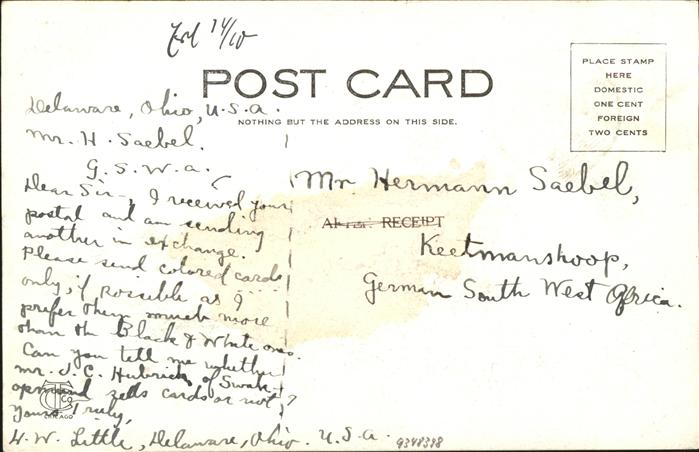 14/10
POST CARD
NOTHING BUT THE ADDRESS ON THIS SIDE.
PLACE STAMP
HERE
DOMESTIC
ONE CENT
FOREIGN
TWO CENTS
Delaware, Ohio, U.S.A.
Mr. H. Saebel.
G. S. W. A.
Dear Sir, I received your
postal and am sending
another in exchange.
Please send colored cards
only, if possible as I
prefer them much more
than the Black & White ones.
Can you tell me whether
Mr. J. C. Hubrich of Swak-
opmund sells cards or not?
Yours truly,
H. W. Little, Delaware, Ohio. U.S.A.
Mr Hermann Saebel,
RECEIPT
Keetmanshoop,
German South West Africa.
CO
CHICAGO
9348398